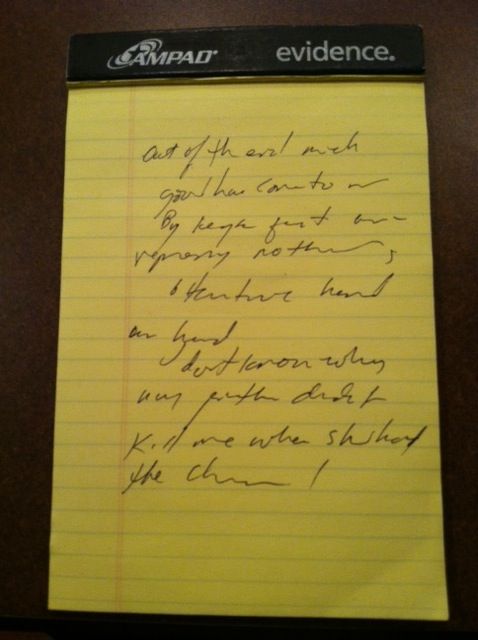 AMPAD evidence.
out of the evil much
good has come to
By
repressing nothing,
attentive hand
hand
don't know why
my didn't
Kill me when she had
the chance!